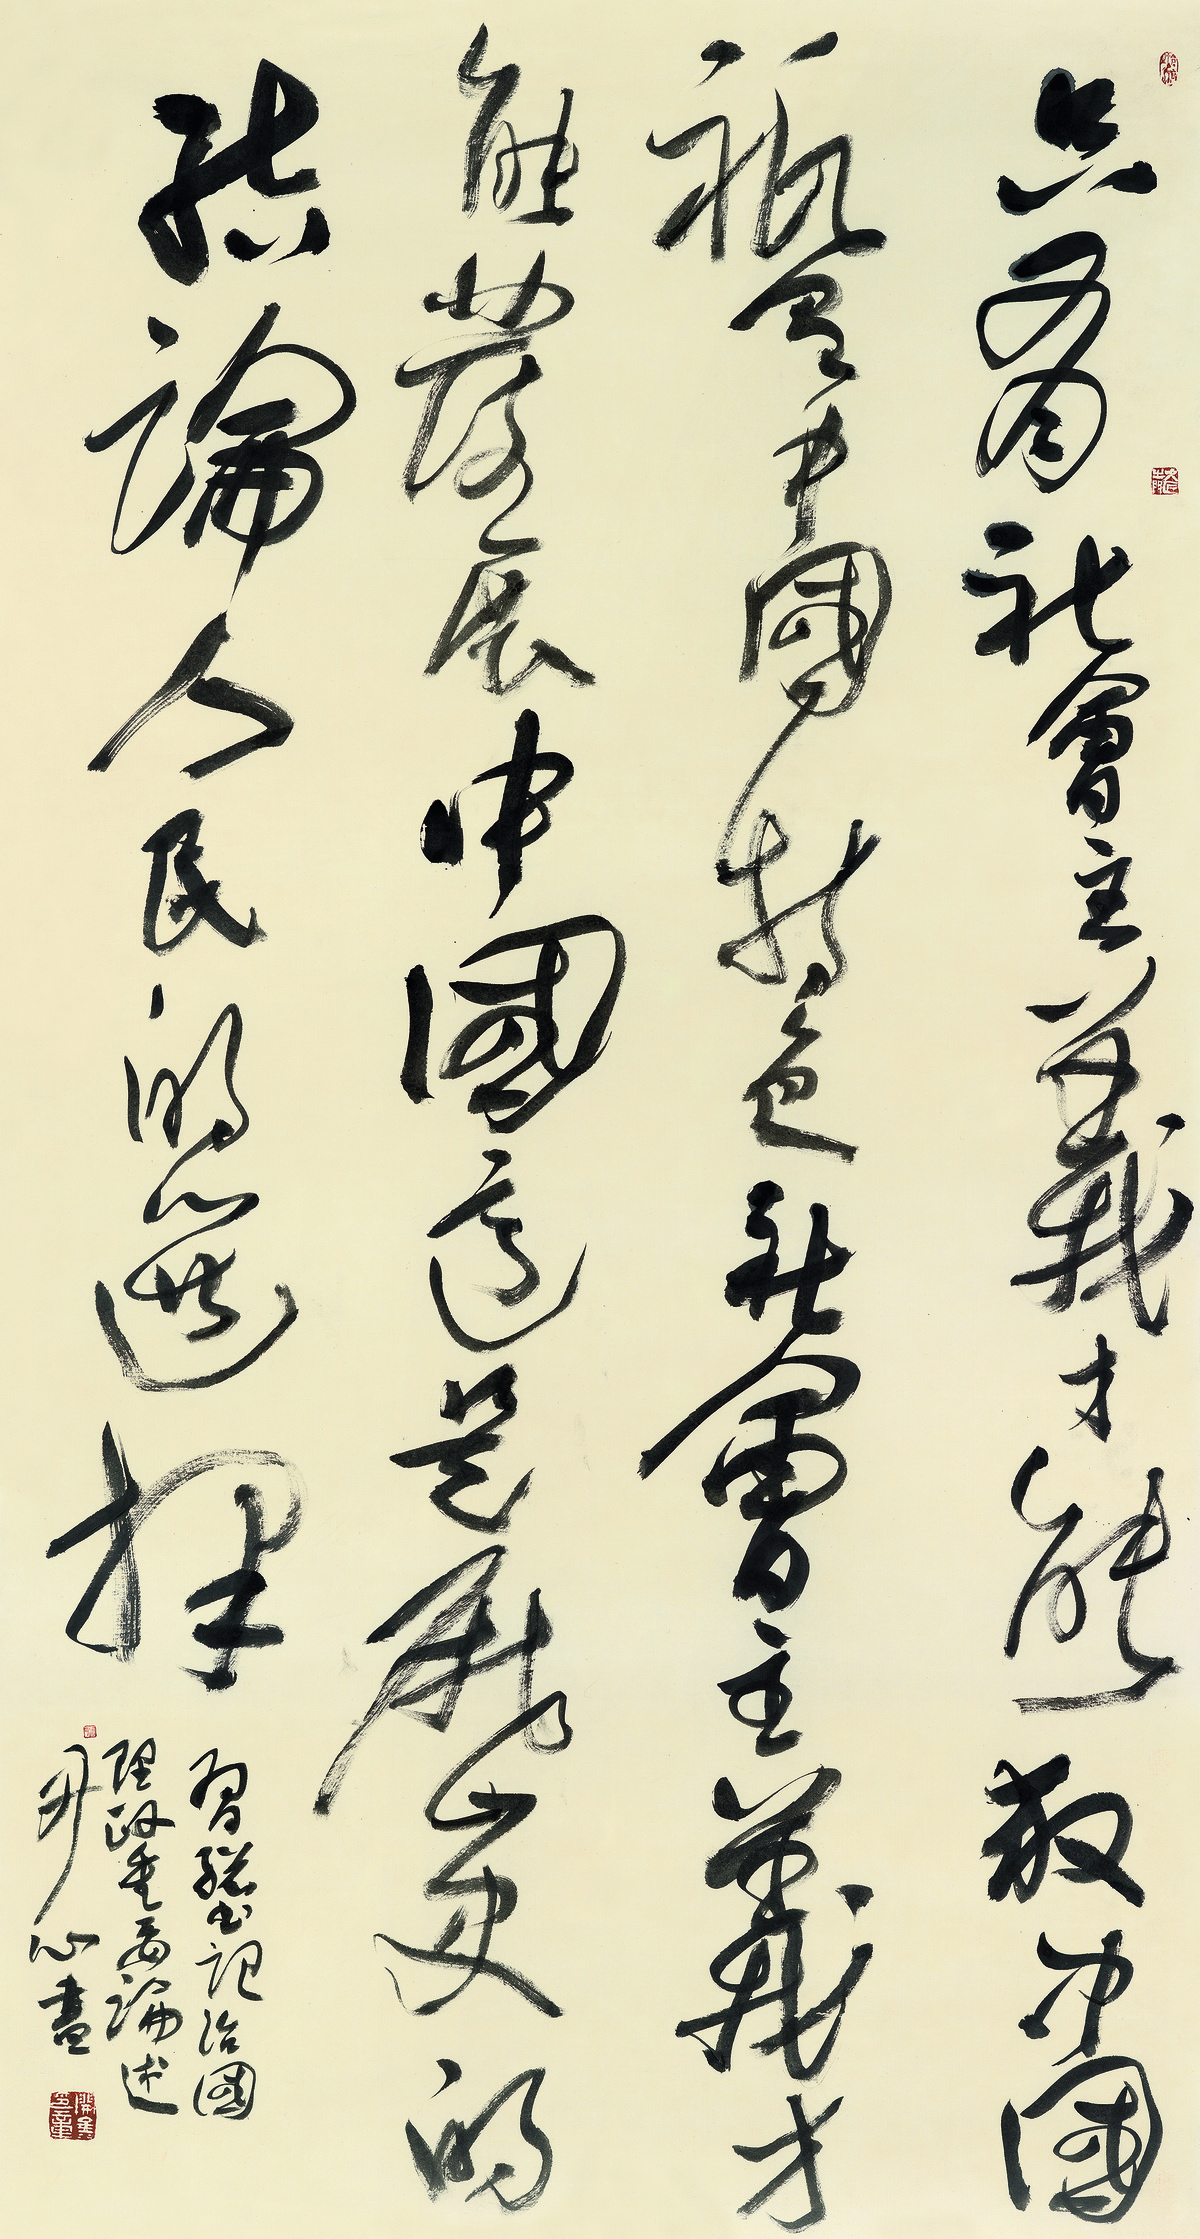 只有社會主義才能救中國
祇有中國特色社會主義才
能發展中國這是歷史的
結論人民的選擇
習總書記治國
理政重要論述
開心書